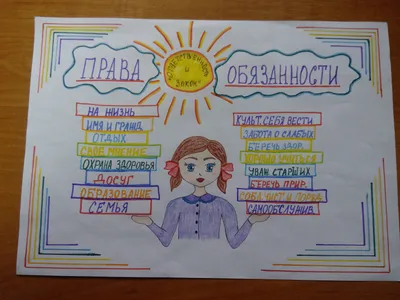 ПРАВА
И
ЗАКОН
ОБЯЗАННОСТИ
НА ЖИЗНЬ
ИМЯ И ГРАЖД.
ОТДЫХ
СВОЕ МНЕНИЕ
ОХРАНА ЗДОРОВЬЯ
ДОСУГ
ОБРАЗОВАНИЕ
СЕМЬЯ
КУЛЬТ. СЕБЯ ВЕСТИ
ЗАБОТА О СЛАБЫХ
БЕРЕЧЬ ЗДОР.
УЧИТЬСЯ
УВАЖ. СТАРШИХ
БЕРЕЧЬ ПРИР.
СОБЛ. ЧИСТ. И ПОРЯД.
САМООБСЛУЖИВ.